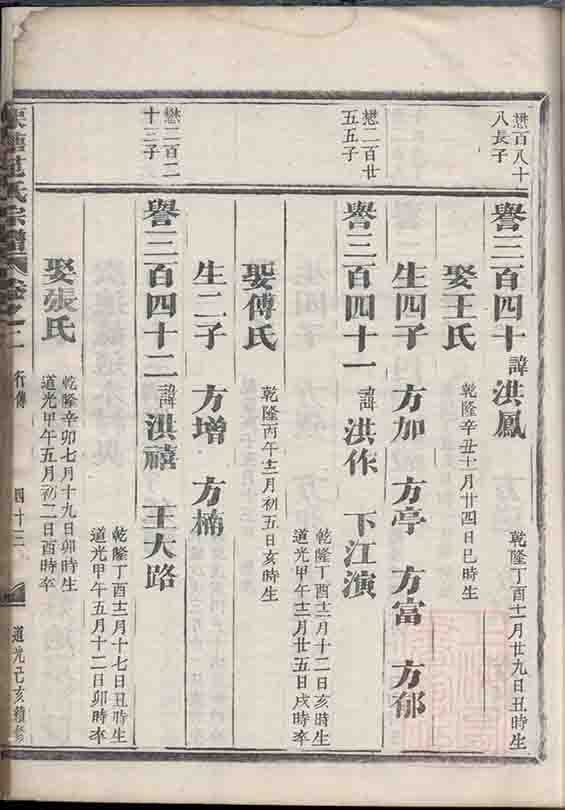 懋百八十
八長子
譽三百四十 諱洪鳳
乾隆丁酉十一月廿九日丑時生
娶王氏
乾隆辛丑十一月廿四日巳時生
生四子 方加 方亭 方富 方郁
懋二百廿
五五子
譽三百四十一 諱洪作 下江演
乾隆丁酉十二月十二日亥時生
道光甲午十二月廿五日戌時卒
娶傅氏
乾隆丙午十二月初五日亥時生
生二子 方增 方楠
懋二百二
十三子
譽三百四十二 諱洪禧 王大路
乾隆丁酉十二月十七日丑時生
道光甲午五月十二日卯時卒
娶張氏
乾隆辛卯七月十九日卯時生
道光甲午五月初二日酉時卒
范氏宗譜 卷之二 行傳 四十三 道光己亥續修